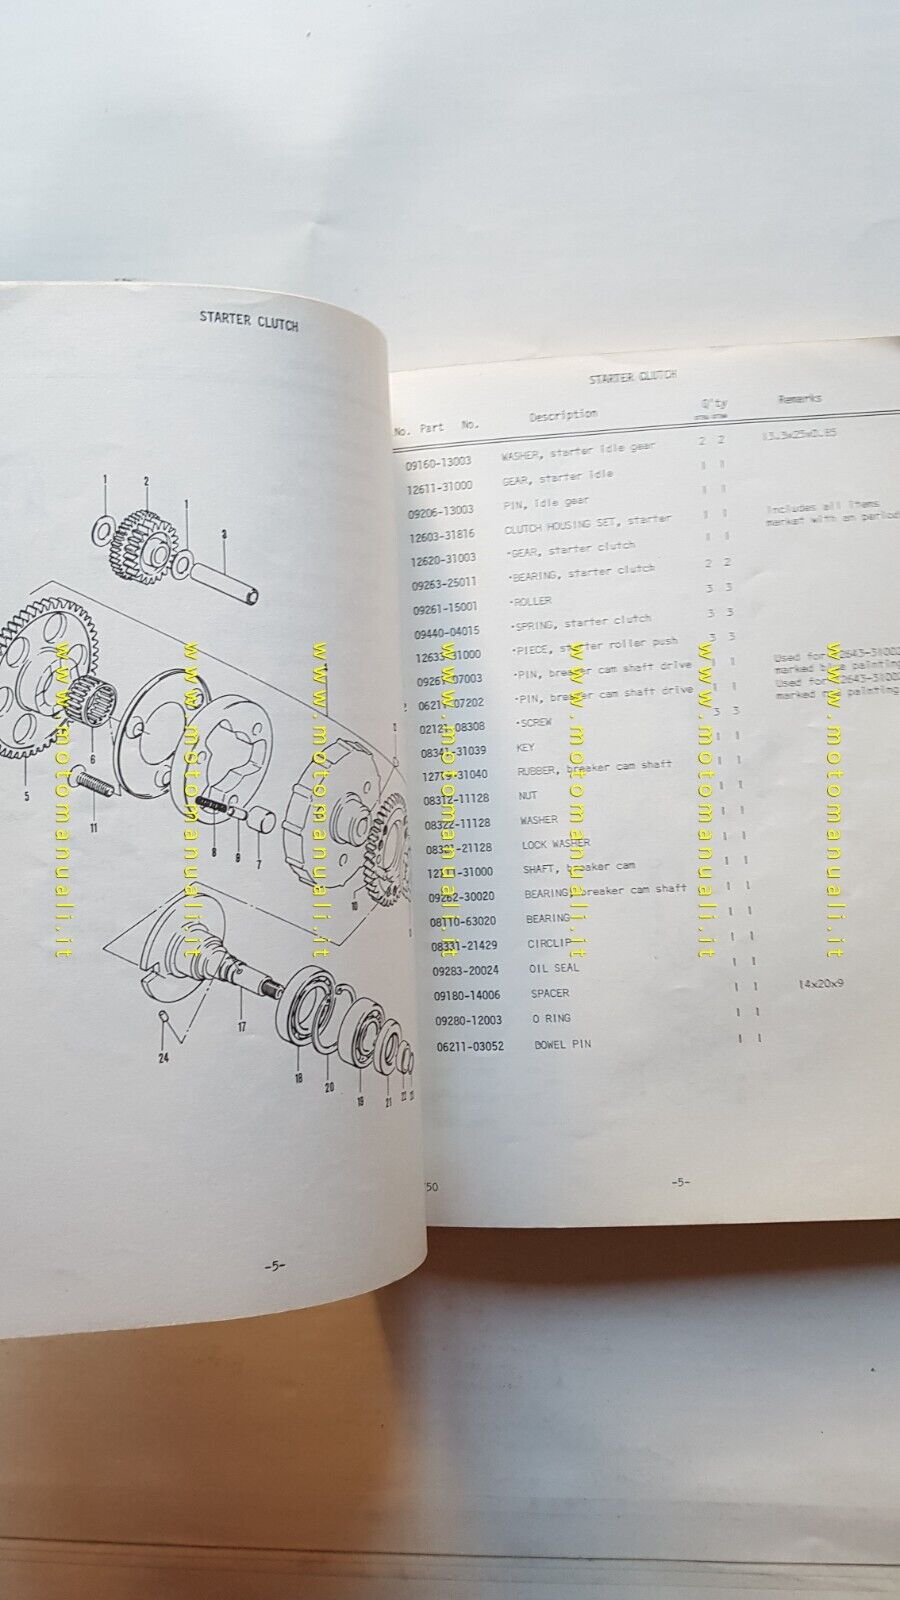 STARTER CLUTCH
1
2
1
3
4
5
6
11
8
9
7
10
17
24
18
20
19
21
22
23
-5-
STARTER CLUTCH
No. Part No. Description Q'ty Remarks
09160-13003 WASHER, starter idle gear 2 2
12611-31000 GEAR, starter idle 1 1
09206-13003 PIN, idle gear 1 1
12603-31816 CLUTCH HOUSING SET, starter 1 1 Includes all items
market with an period
12620-31003 ·GEAR, starter clutch 1 1
09263-25011 ·BEARING, starter clutch 2 2
09261-15001 ·ROLLER 3 3
09440-04015 ·SPRING, starter clutch 3 3
12633-31000 ·PIECE, starter roller push 3 3
07003 ·PIN, breaker cam shaft drive 1 1 Used for 12643-31002
marked blue painting
07202 ·PIN, breaker cam shaft drive 1 1 Used for 12643-31002
marked painting
08308 ·SCREW 3 3
31039 KEY 1 1
31040 RUBBER, breaker cam shaft 1 1
08312-11128 NUT 1 1
08322-11128 WASHER 1 1
08321-21128 LOCK WASHER 1 1
31000 SHAFT, breaker cam 1 1
09262-30020 BEARING, breaker cam shaft 1 1
08110-63020 BEARING 1 1
08331-21429 CIRCLIP 1 1
09283-20024 OIL SEAL 1 1
09180-14006 SPACER 1 1 14x20x9
09280-12003 O RING 1 1
06211-03052 BOWEL PIN 1 1
-5-
www.motomanuali.it
www.motomanuali.it
www.motomanuali.it
www.motomanuali.it
www.motomanuali.it
www.motomanuali.it
www.motomanuali.it